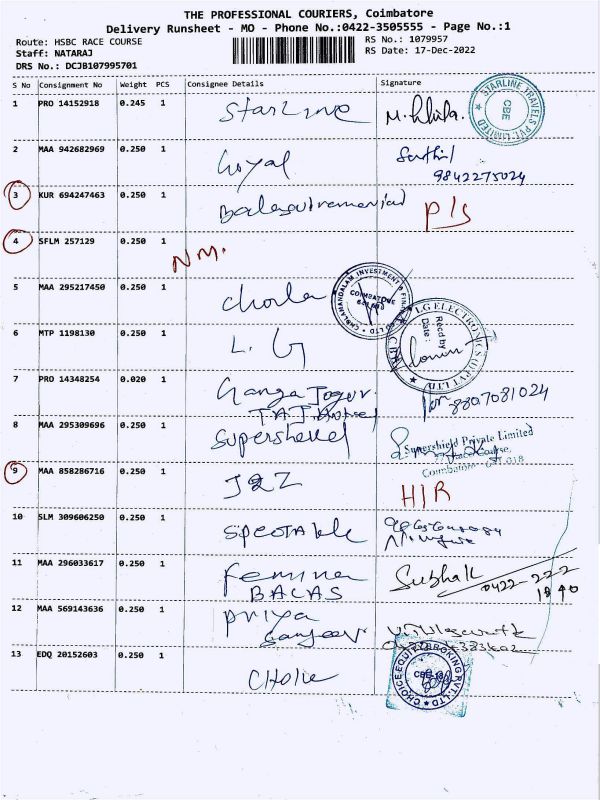 THE PROFESSIONAL COURIERS, Coimbatore
Delivery Runsheet - MO - Phone No.:0422-3505555 - Page No.:1
Route: HSBC RACE COURSE
Staff: NATARAJ
DRS No.: DCJB107995701
RS No.: 1079957
RS Date: 17-Dec-2022
S No Consignment No Weight PCS Consignee Details Signature
1 PRO 14152918 0.245 1 Starline
STARLINE TRAVELS PVT. LIMITED CBE
2 MAA 942682969 0.250 1 Goyal Senthil
9842275024
3 KUR 694247463 0.250 1 P/S
4 SFLM 257129 0.250 1 NM.
5 MAA 295217450 0.250 1 Chola
CHOLAMANDALAM INVESTMENT & FINANCE CO LTD COIMBATORE
6 MTP 1198130 0.250 1 L.G
LG ELECTRONICS Recd by Date: CBE
7 PRO 14348254 0.020 1 Ganga
TAJ
8807081024
8 MAA 295309696 0.250 1 Supershield
Supershield Private Limited
Race Course,
Coimbatore - 641 018
9 MAA 858286716 0.250 1 J2Z H/R
10 SLM 309606250 0.250 1
11 MAA 296033617 0.250 1 Femina
BALAS
Subha K
0422-222
1840
12 MAA 569143636 0.250 1 Priya
Sanjeev
13 EDQ 20152603 0.250 1 CHOIE
CHOICE EQUITY BROKING PVT. LTD CBE-18